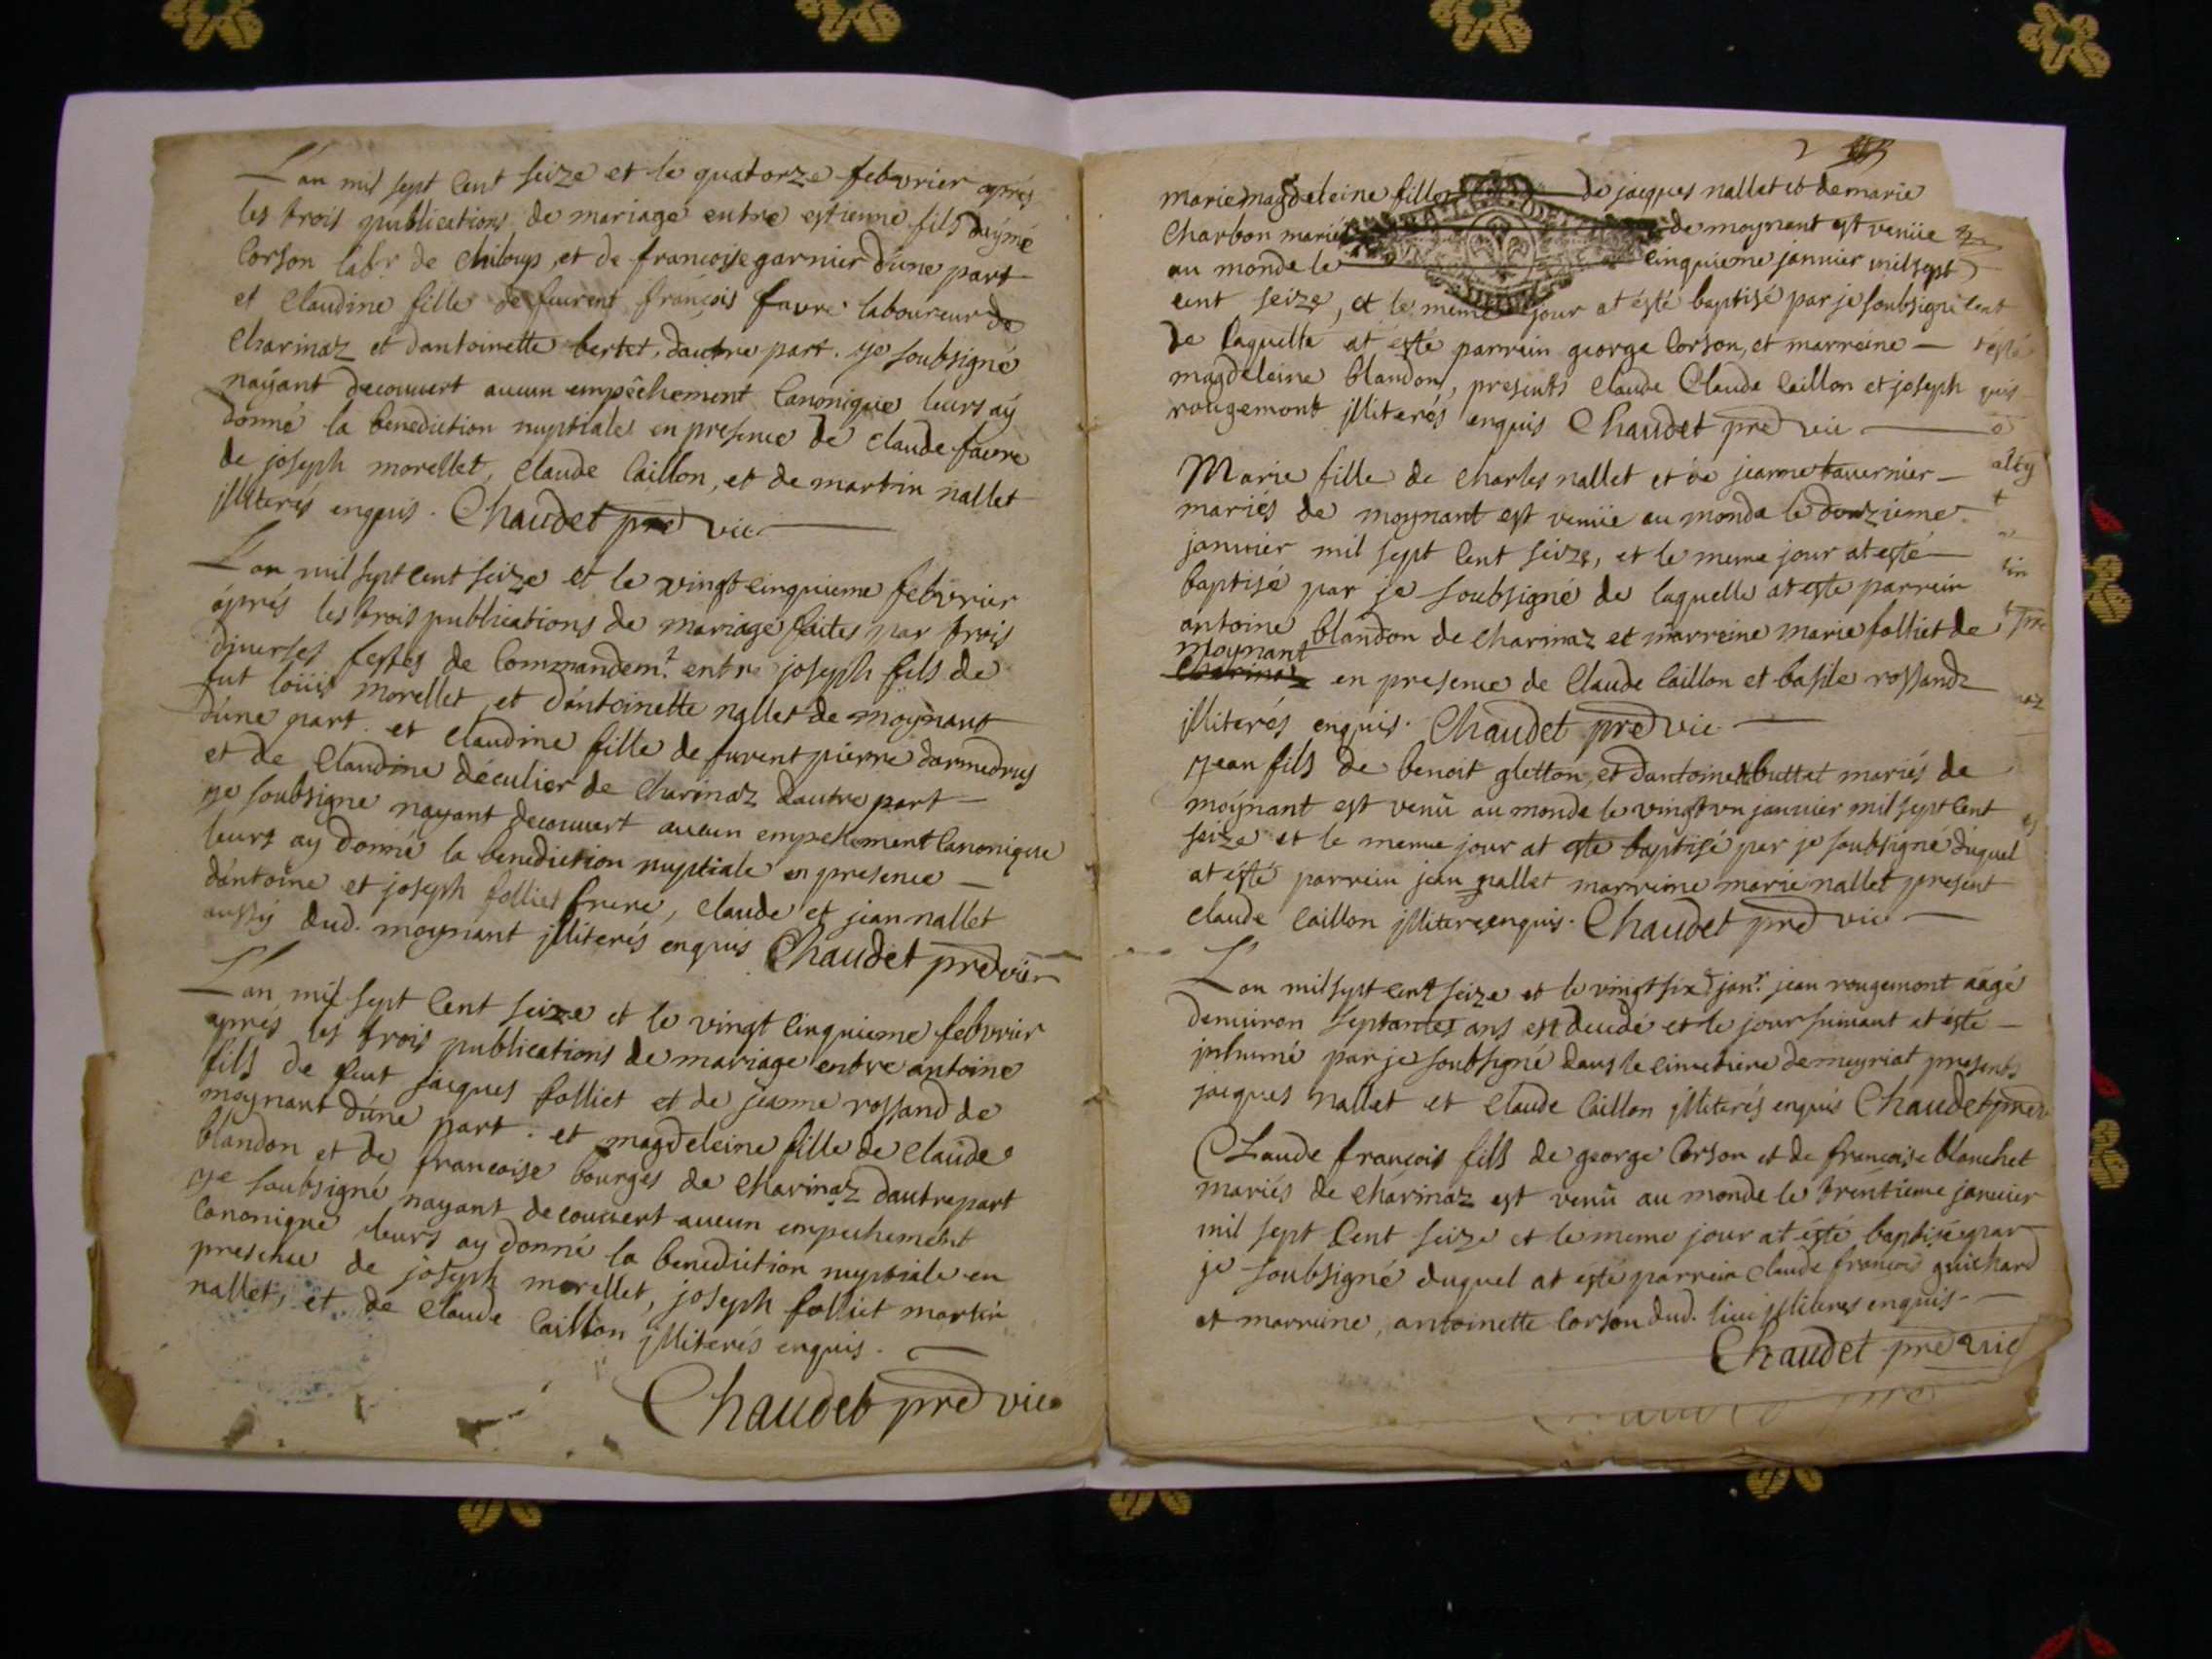 L'an mil sept cent seize et le quatorze febvrier aprés
les trois publications de mariage entre estienne fils daýmé
Corson labr de chiloup, et de francoise garnier d'une part
et Claudine fille de feurent françois favre laboureur de
Charinaz et dantoinette bertet dautre part. je soubsigné
naÿant decouvert aucun empêchement Canonique leurs aÿ
donné la benediction nuptiale en presence de claude favre
de joseph morellet, Claude Caillon, et de martin nallet
jlliterés enquis. Chaudet pre vic
L'an mil sept cent seize et le vingt cinquieme febvrier
áprés les trois publications de mariage faites par trois
diverses festes de Commandemt. entre joseph fils de
fut loüis morellet, et d'antoinette nallet de moÿnant
d'une part. et claudine fille de furent pierre darmedrus
et de Claudine déculier de Charinaz dautre part
je soubsigne nayant decouvert aucun empechement Canonique
leurs ay donné la benediction nuptiale en presence
d'antoine et joseph folliet frere, claude et jean nallet
aussÿ dud. moynant jlliterés enquis Chaudet pre vic
L'an mil sept Cent seize et le vingt cinquieme febvrier
aprés les trois publications de mariage entre antoine
fils de feut jacques folliet et de jeanne rossand de
moynant d'une part. et magdeleine fille de claude
blandon et de francoise bourges de Charinaz dautre part
je soubsigné nayant decouvert aucun empechement
Canonique leurs ay donné la benediction nuptiale en
presence de joseph morellet, joseph folliet martin
nallet, et de Claude Caillon jlliterés enquis.
Chaudet pre vic
2
marie magdeleine fille de jacques nallet et de marie
Charbon mariés de moynant est venüe
au monde le cinquieme janvier mil sept
cent seize, et le meme jour at ésté baptisé par je soubsigné
de laquelle at ésté parrein george Corson, et marreine
magdeleine blandon, presents Claude Claude Caillon et joseph
rougemont jlliterés enquis Chaudet pre vic
Marie fille de Charles nallet et de jeanne tavernier
mariés de moynant est venüe au monde le douzieme
janvier mil sept Cent seize, et le meme jour at esté
baptisé par je soubsigné de laquelle at este parrein
antoine blandon de Charinaz et marreine marie folliet de
moynant
Charinaz en presence de Claude Caillon et basile rossand
jlliterés enquis. Chaudet pre vic
Jean fils de benoit gletton, et dantoine buttet mariés de
moÿnant est venü au monde le vingt vn janvier mil sept Cent
seize et le meme jour at este baptisé par je soubsigné duquel
at ésté parrein jean nallet marreine marie nallet present
Claude Caillon jllitere enquis. Chaudet pre vic
L'an mil sept cent seize et le vingt six janr. jean rougemont aagé
denviron septantes ans est decedé et le jour suivant at ésté
jnhumé par je soubsigné dans le cimetiere de meyriat presents
jacques nallet et Claude Caillon jlliterés enquis Chaudet pre vic
Claude françois fils de george Corson et de francoise blanchet
mariés de Charinaz est venü au monde le trentieme janvier
mil sept Cent seize et le meme jour at ésté baptisé par
je soubsigné duquel at ésté parrein Claude françois guichard
et marreine, antoinette Corson dud. lieu jlliteres enquis
Chaudet pre vic